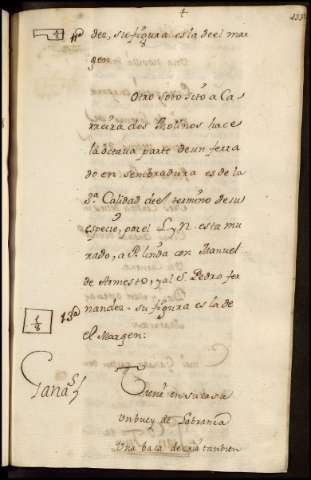 dee, su figura es la de el mar
gen
Otro soto dcto a Ca
rreira dos Molinos hace
la octava parte de un ferra
do en sembradura es de la
2ª Calidad de el termino de su
especie, por el L, y N. esta mu
rado, a P. linda con Manuel
de Armesto, y al S. Pedro fer
nandez. su figura es la de
el Margen:
1/8 13ª
Ganas
Tiene en su casa
Un buey de Labranza
Una baca de cria tambien